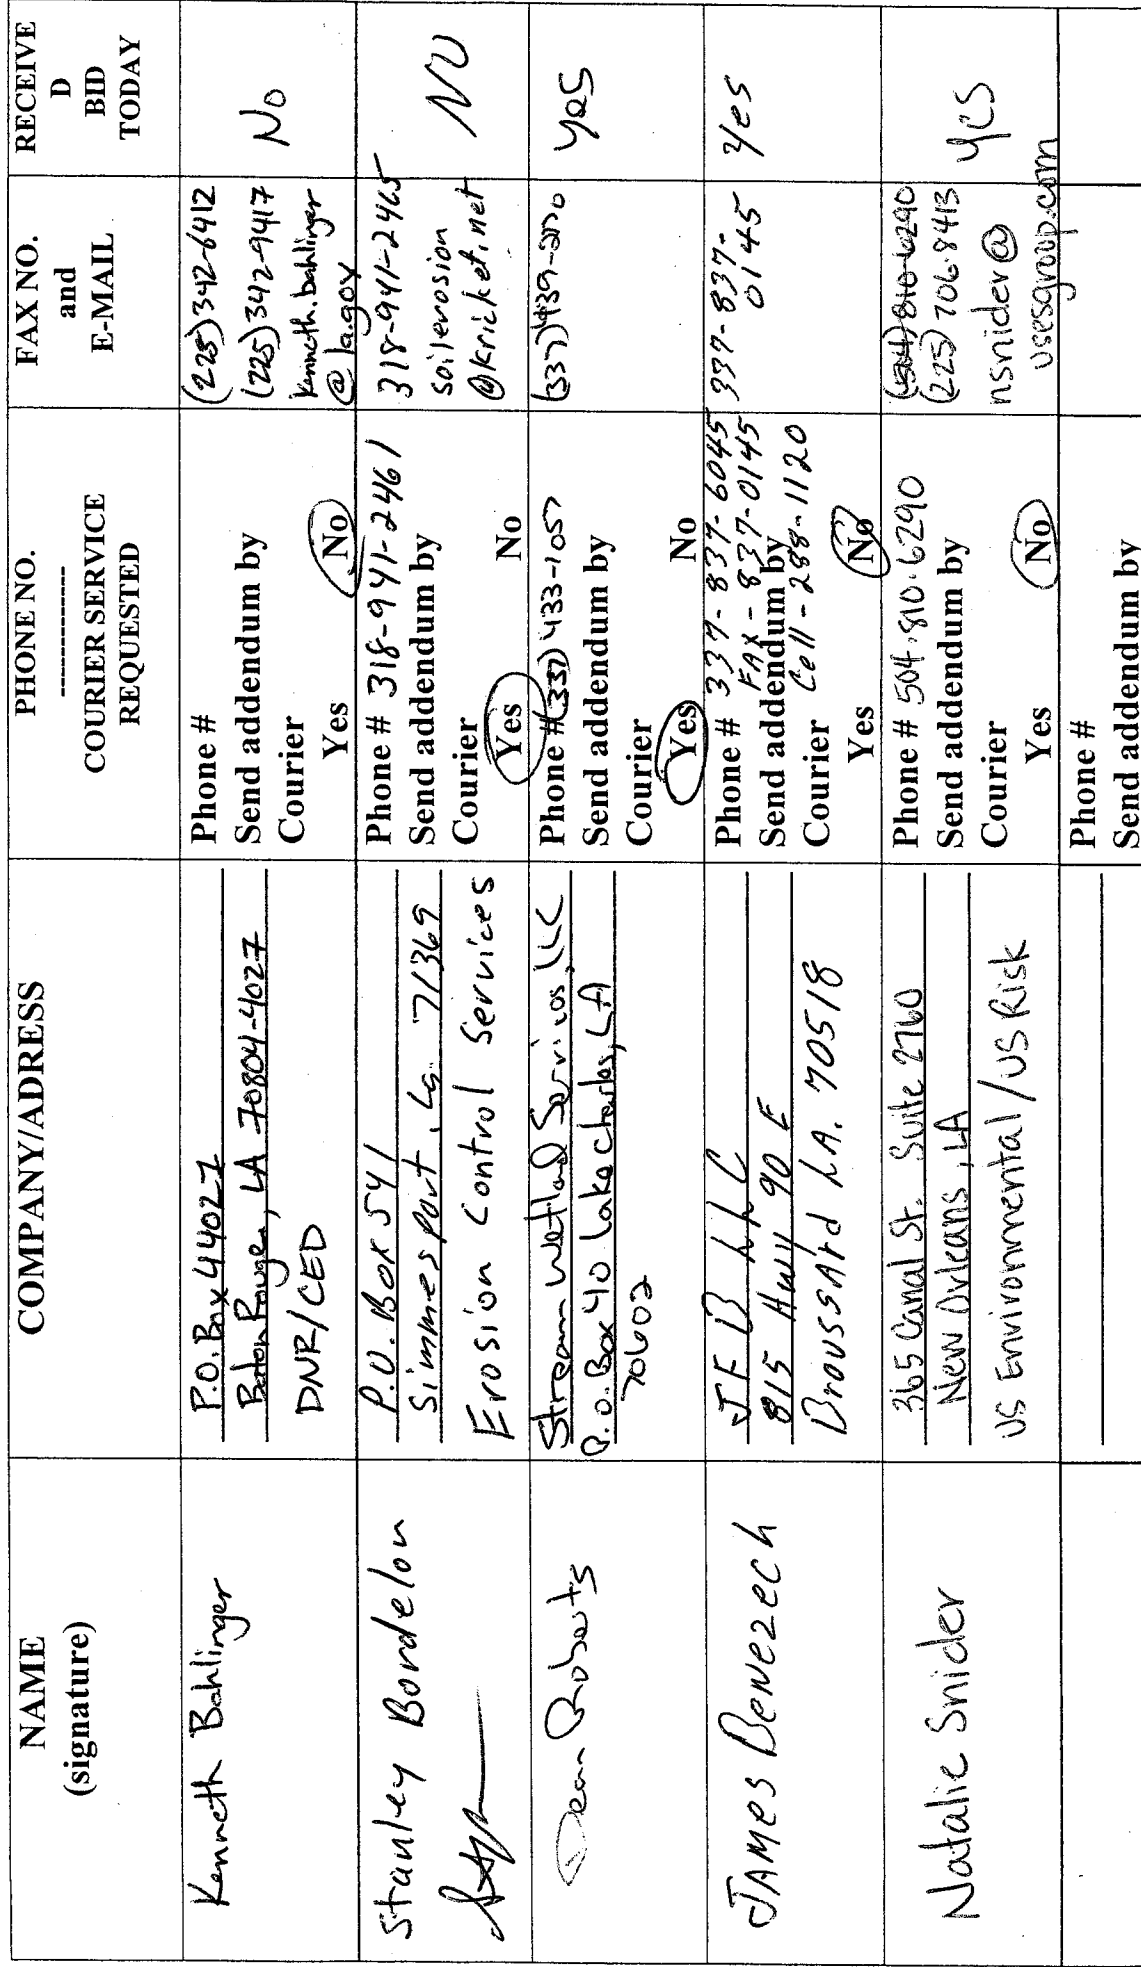 NAME
(signature)
COMPANY/ADRESS
PHONE NO.
------------
COURIER SERVICE
REQUESTED
FAX NO.
and
E-MAIL
RECEIVE
D
BID
TODAY
Kenneth Bahlinger
P.O. Box 44027
Baton Rouge, LA 70804-4027
DNR/CED
Phone #
Send addendum by
Courier
Yes No
(225) 342-6412
(225) 342-9417
kenneth.bahlinger
@la.gov
No
Stanley Bordelon
P.O. Box 541
Simmesport, La. 71369
Erosion Control Services
Phone # 318-941-2461
Send addendum by
Courier
Yes No
318-941-2465
soilerosion
@kricket.net
NO
Dean Roberts
Stream Wetland Services, LLC
P.O. Box 40 Lake Charles, LA
70602
Phone # (337) 433-1057
Send addendum by
Courier
Yes No
(337) 439-
Yes
JAMES BENEZECH
JFB LLC
815 Hwy 90 E
Broussard LA. 70518
Phone # 337-837-6045
FAX - 837-0145
Send addendum by
Cell - 288-1120
Courier
Yes No
337-837-
0145
Yes
Natalie Snider
365 Canal St. Suite 2760
New Orleans, LA
US Environmental/US Risk
Phone # 504.810.6290
Send addendum by
Courier
Yes No
(504) 810-6290
(225) 706.8413
nsnider@
usesgroup.com
Yes
Phone #
Send addendum by